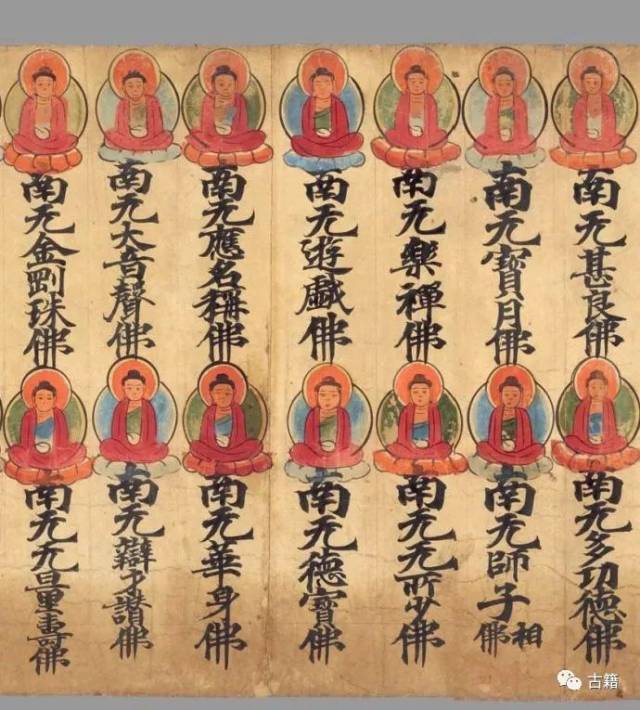 南无甚良佛
南无多功德佛
南无寶月佛
南无師子相佛
南无樂禪佛
南无无所少佛
南无遊戯佛
南无德寶佛
南无應名稱佛
南无華身佛
南无大音聲佛
南无辯才讚佛
南无金剛珠佛
南无无量壽佛
古籍